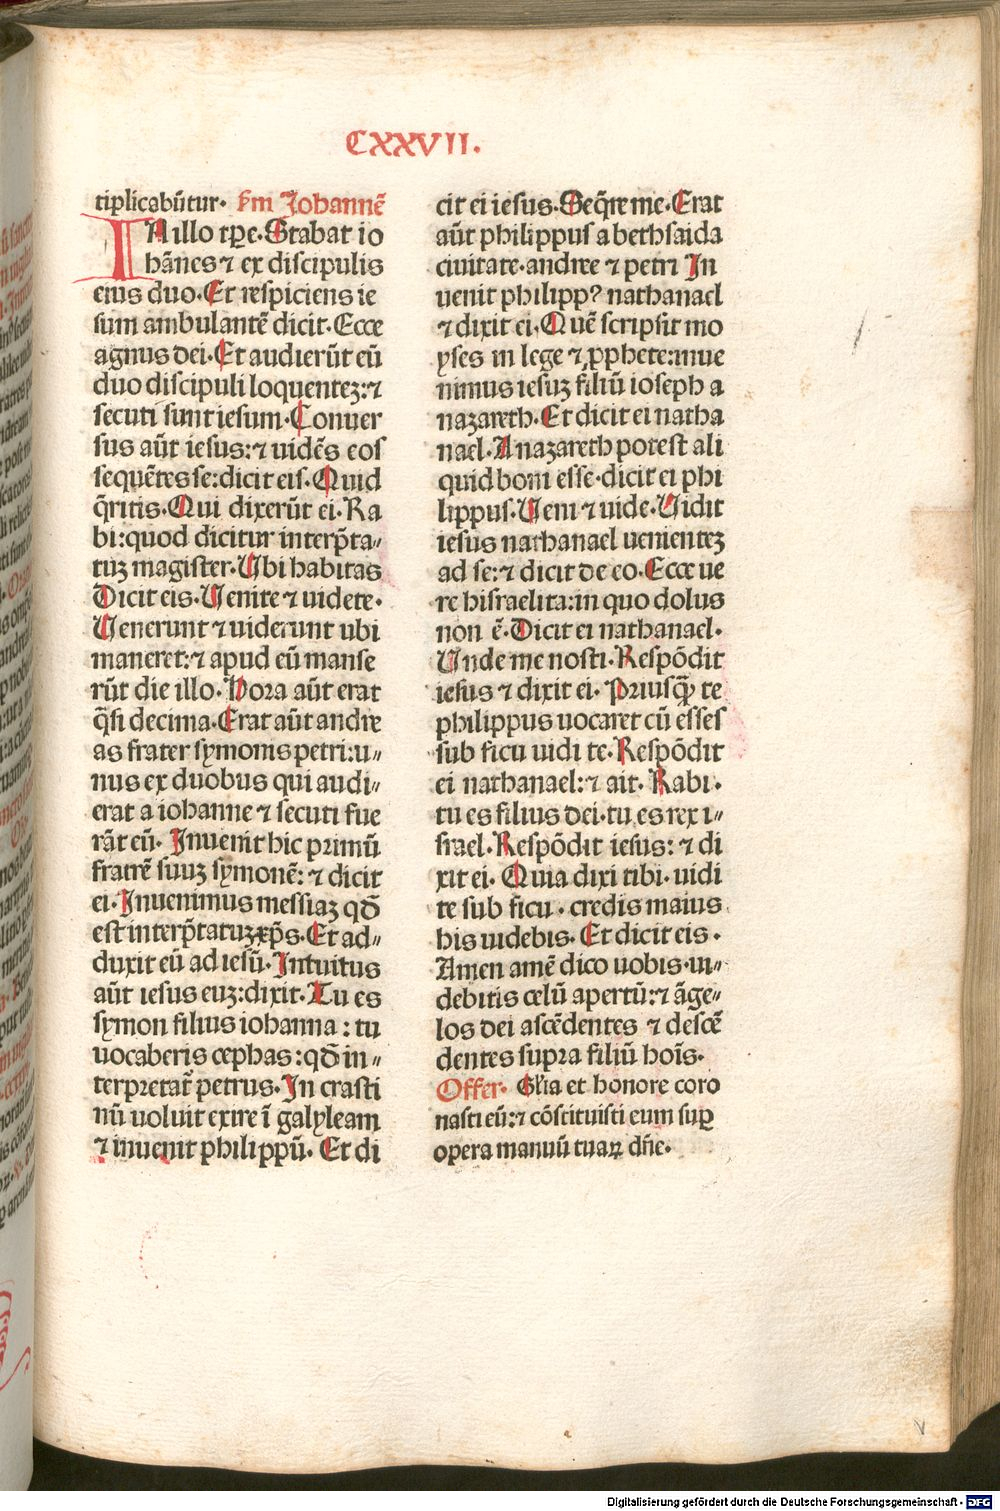 CXXVII.
tiplicabũtur. s̃m Johannẽ
IN illo tp̃e. Stabat io
hãnes ⁊ ex discipulis
eius duo. Et respiciens ie
sum ambulantẽ dicit. Ecce
agnus dei. Et audierũt eũ
duo discipuli loquentez: ⁊
secuti sunt iesum. Conuer
sus aũt iesus: ⁊ uidẽs eos
sequẽtes se: dicit eis. Quid
q̃ritis. Qui dixerũt ei. Ra
bi: quod dicitur interp̃ta„
tuz magister. Ubi habitas
Dicit eis. Uenite ⁊ uidete.
Uenerunt ⁊ uiderunt ubi
maneret: ⁊ apud eũ manse
rũt die illo. Hora aũt erat
q̃si decima. Erat aũt andre
as frater symonis petri: u„
nus ex duobus qui audi„
erat a iohanne ⁊ secuti fue
rãt eũ. Inuenit hic primũ
fratrẽ suuz symonẽ: ⁊ dicit
ei. Inuenimus messiaz qđ
est interp̃tatuz xp̃s. Et ad„
duxit eũ ad iesũ. Intuitus
aũt iesus euz: dixit. Tu es
symon filius iohanna: tu
uocaberis cephas: qđ in„
terpretat̃ petrus. In crasti
nũ uoluit exire ĩ galyleam
⁊ inuenit philippũ. Et di
cit ei iesus. Seq̃re me. Erat
aũt philippus a bethsaida
ciuitate. andree ⁊ petri In
uenit philippꝰ nathanael
⁊ dixit ei. Quẽ scripsit mo
yses in lege ⁊ ꝓphete: inue
nimus iesuz filiũ ioseph a
nazareth. Et dicit ei natha
nael. A nazareth potest ali
quid boni esse. dicit ei phi
lippus. Ueni ⁊ uide. Uidit
iesus nathanael uenientez
ad se: ⁊ dicit de eo. Ecce ue
re hisraelita: in quo dolus
non ẽ. Dicit ei nathanael.
Unde me nosti. Respõdit
iesus ⁊ dixit ei. Priusq̃ te
philippus uocaret cũ esses
sub ficu uidi te. Respõdit
ei nathanael: ⁊ ait. Rabi.
tu es filius dei. tu es rex i„
srael. Respõdit iesus: ⁊ di
xit ei. Quia dixi tibi. uidi
te sub ficu. credis maius
his uidebis. Et dicit eis.
Amen amẽ dico uobis. ui„
debitis celũ apertũ: ⁊ ãge„
los dei ascẽdentes ⁊ descẽ
dentes supra filiũ hoĩs.
Offer. Gl̃ia et honore coro
nasti eũ: ⁊ cõstituisti eum suꝑ
opera manuũ tuaꝝ dñe.
Digitalisierung gefördert durch die Deutsche Forschungsgemeinschaft - DFG